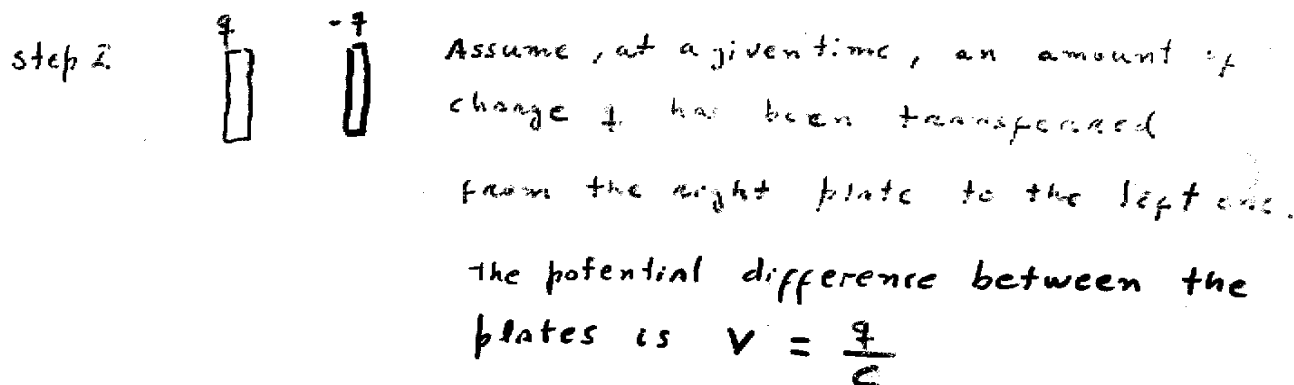 q -q
step 2 Assume, at a given time, an amount of
charge q has been transferred
from the right plate to the left one.
The potential difference between the
plates is V = q/C